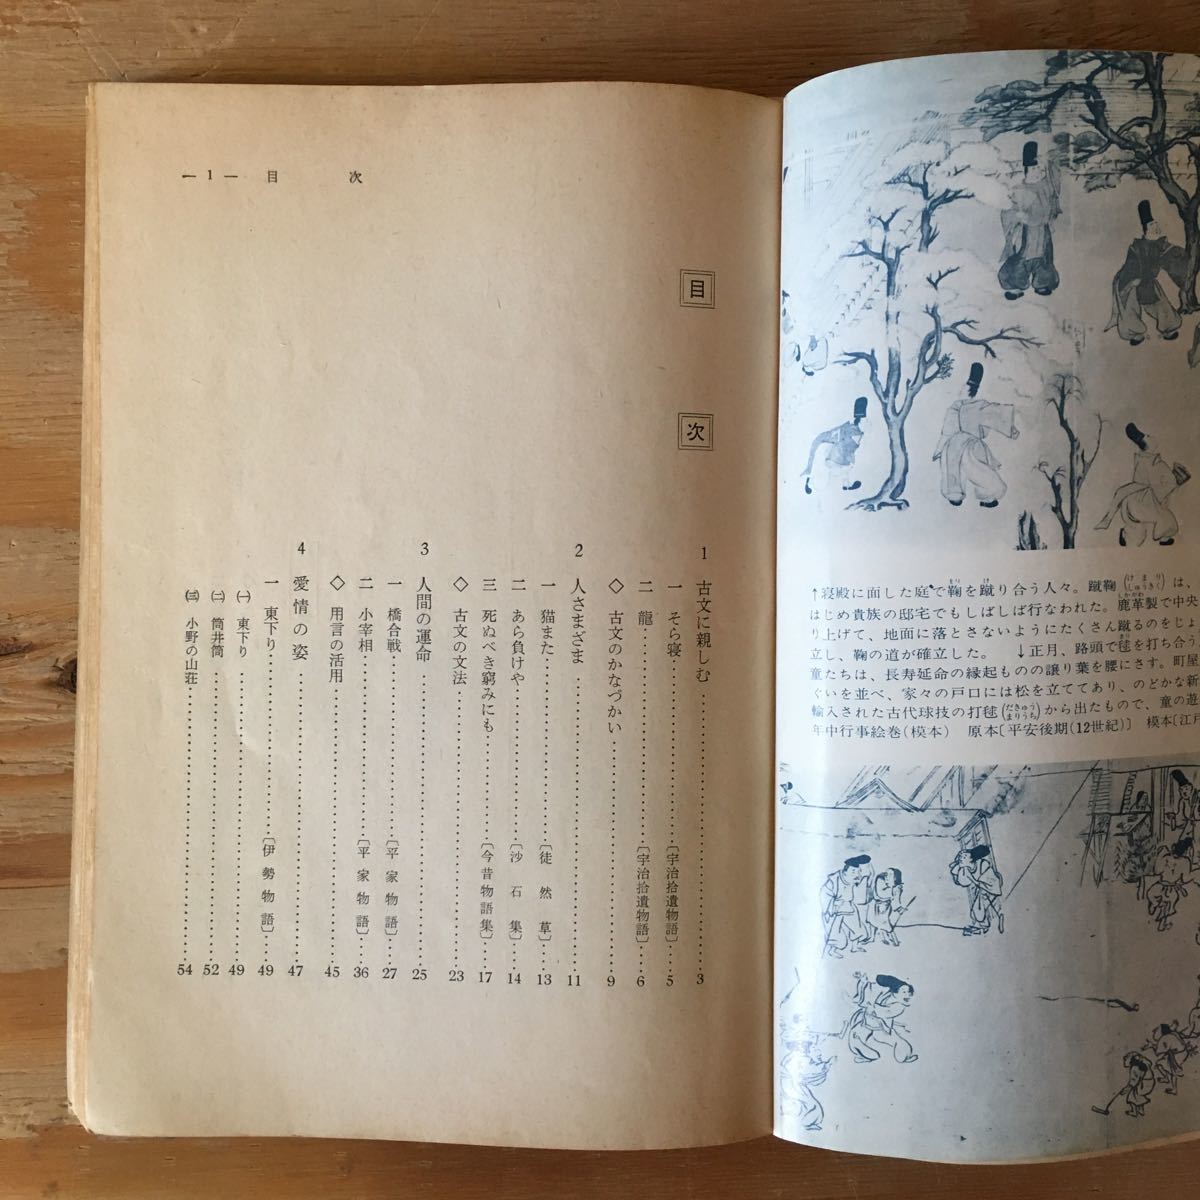 ↑寝殿に面した庭で鞠を蹴り合う人々。蹴鞠(けまり しゅうきく)は、
はじめ貴族の邸宅でもしばしば行なわれた。鹿革製で中央
り上げて、地面に落とさないようにたくさん蹴るのをじょ
立し、鞠の道が確立した。 ↓正月、路頭で毬を打ち合う
童たちは、長寿延命の縁起ものの譲り葉を腰にさす。町屋
ぐいを並べ、家々の戸口には松を立ててあり、のどかな新
輸入された古代球技の打毬(だきゅう まりうち)から出たもので、童の遊
年中行事絵巻(模本) 原本〔平安後期(12世紀)〕 模本〔江戸
目次
1 古文に親しむ……3
一 そら寝……〔宇治拾遺物語〕……5
二 龍……〔宇治拾遺物語〕……6
◇ 古文のかなづかい……9
2 人さまざま……11
一 猫また……〔徒然草〕……13
二 あら負けや……〔沙石集〕……14
三 死ぬべき窮みにも……〔今昔物語集〕……17
◇ 古文の文法……23
3 人間の運命……25
一 橋合戦……〔平家物語〕……27
二 小宰相……〔平家物語〕……36
◇ 用言の活用……45
4 愛情の姿……47
一 東下り……〔伊勢物語〕……49
㈠ 東下り……49
㈡ 筒井筒……52
㈢ 小野の山荘……54
—1— 目次